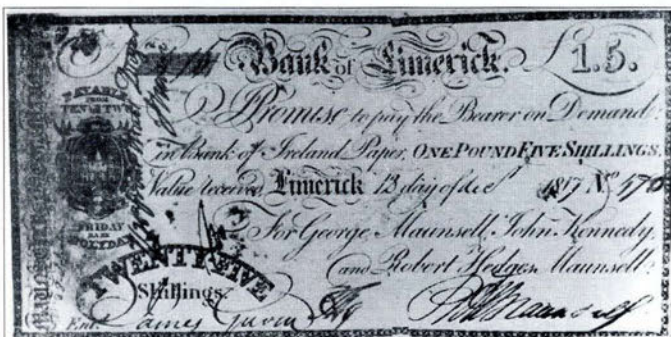 Bank of Limerick. £1.5.
PAYABLE
FROM
TEN TO TWO
I Promise to pay the Bearer on Demand
in Bank of Ireland Paper, ONE POUND FIVE SHILLINGS,
Value received Limerick 13 day of dec 1817 No
For George Maunsell, John Kennedy,
and Robert Hedges Maunsell.
FRIDAY
HOLYDAY
TWENTY FIVE
Shillings.
Ent. James